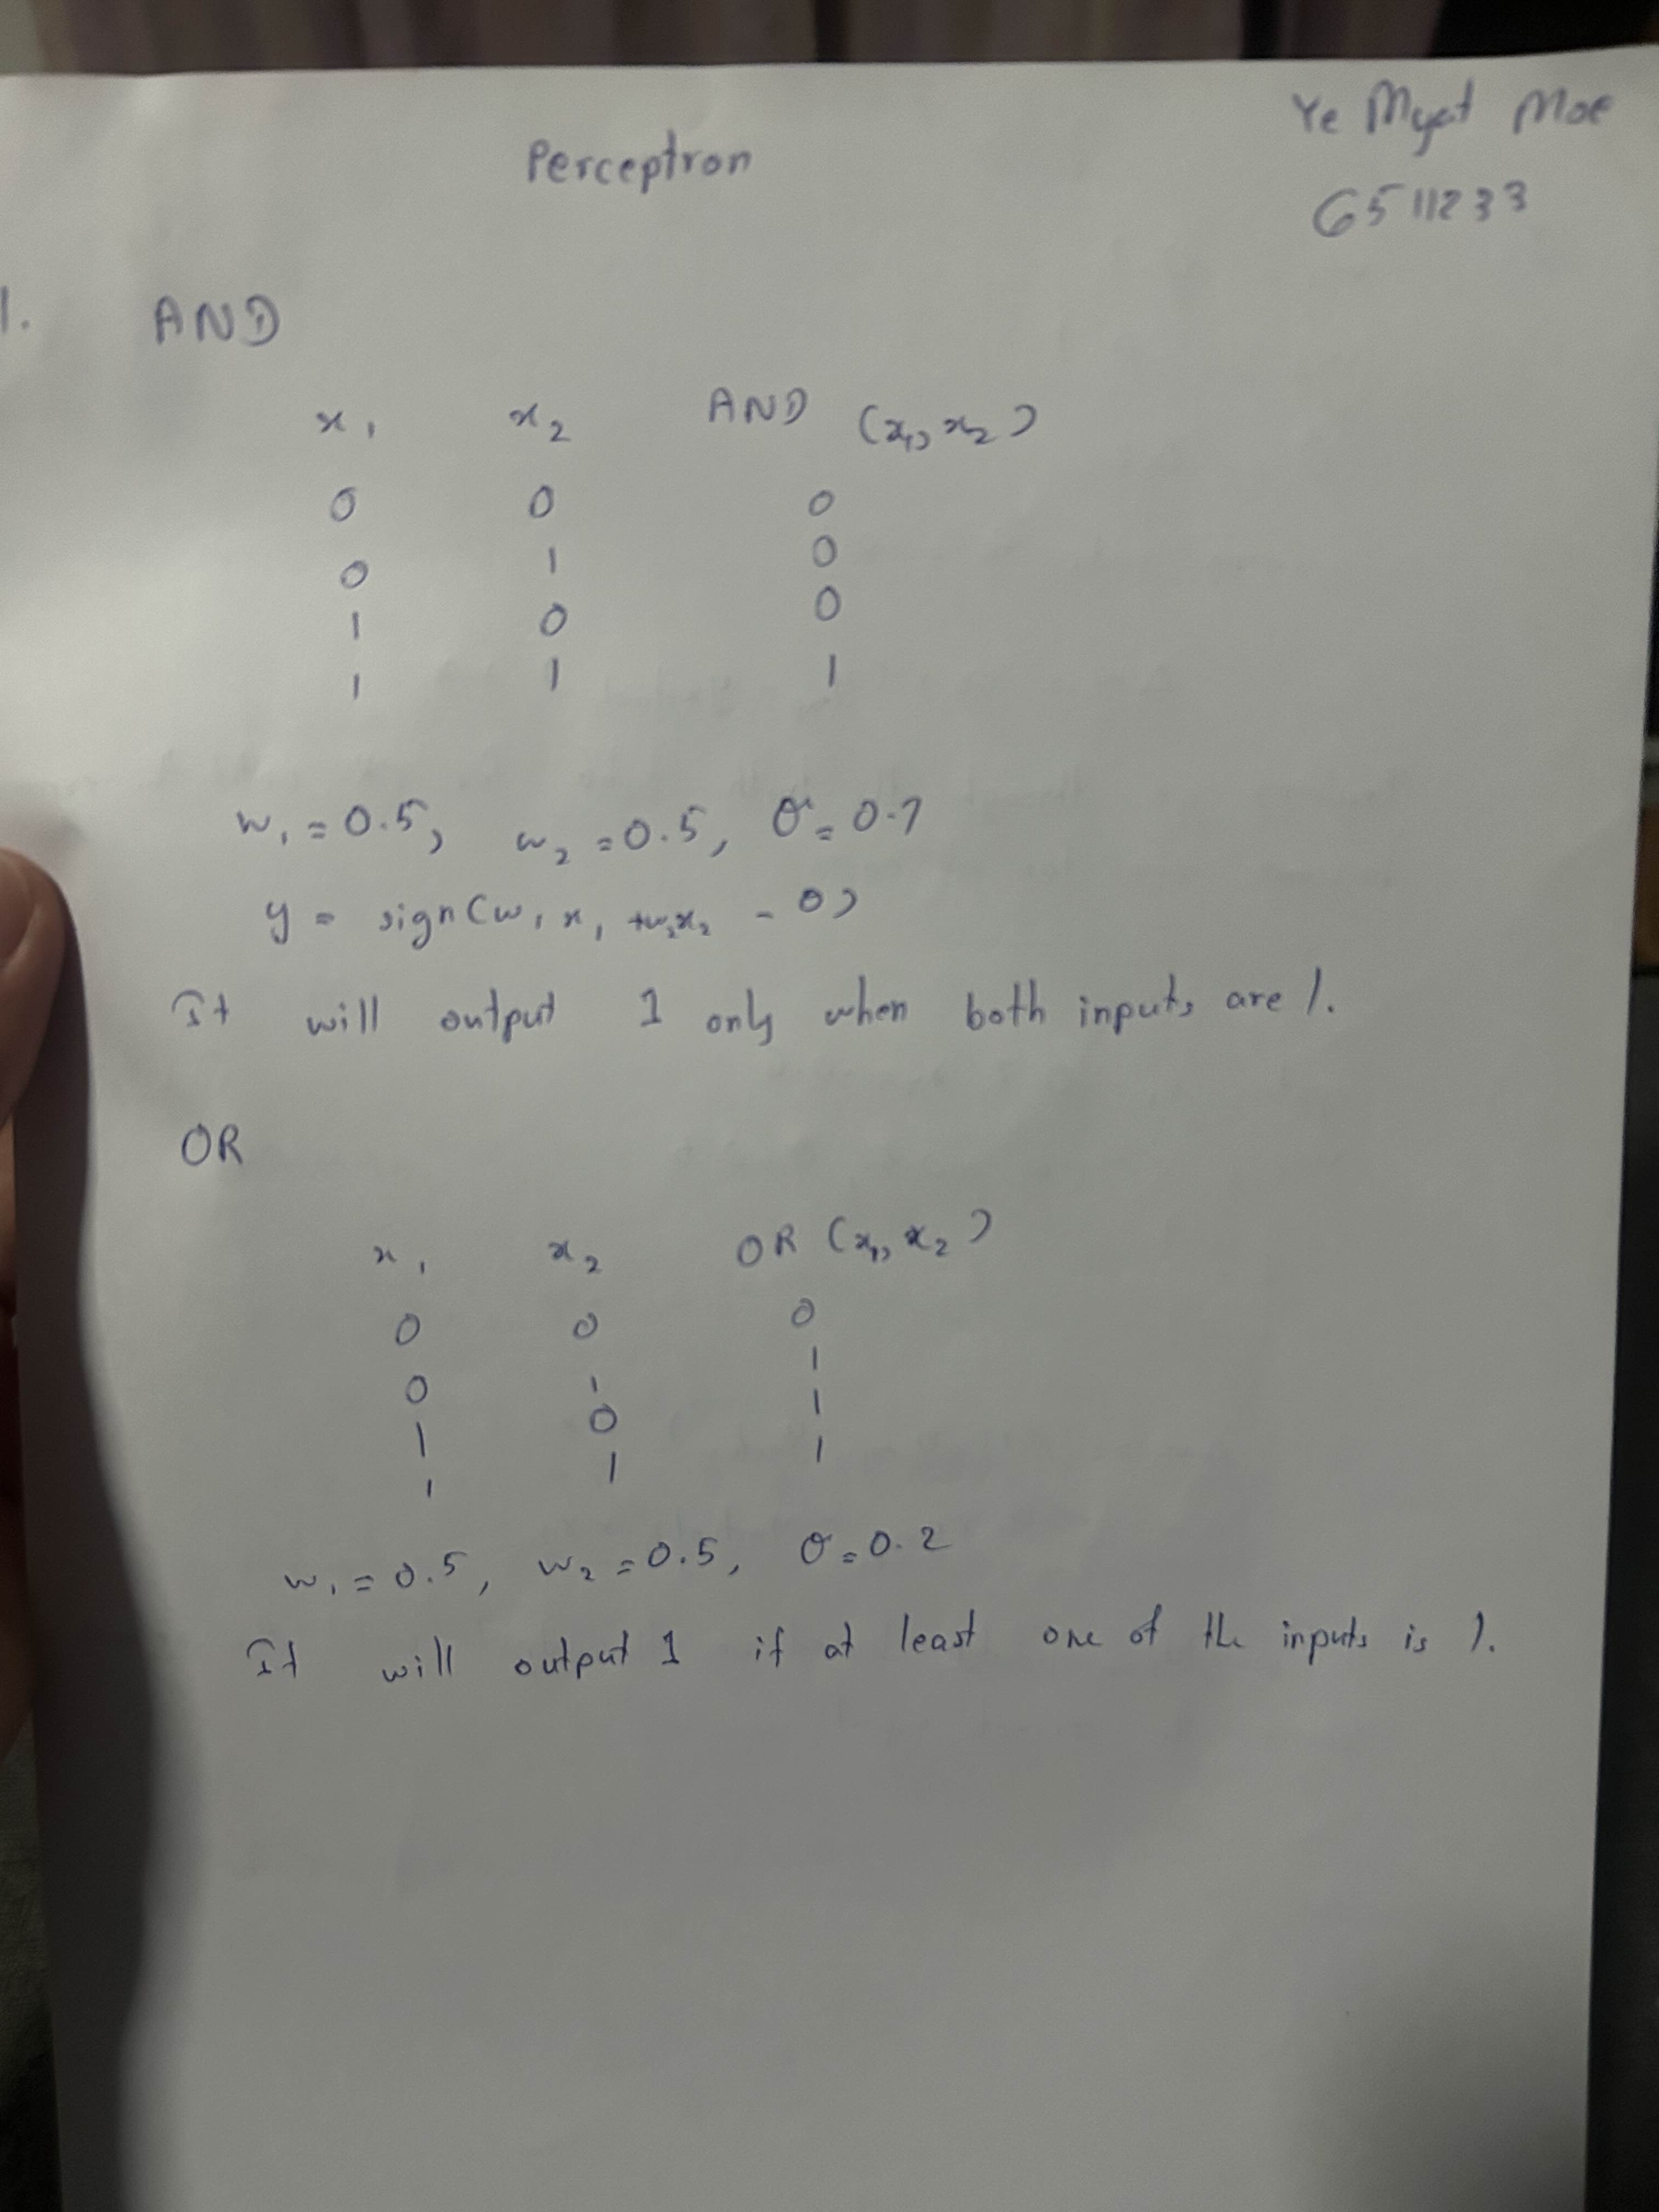 Ye Myat Moe
Perceptron
6511233
1. AND
x₁ x₂ AND (x₁, x₂)
0 0 0
0 1 0
1 0 0
1 1 1
w₁ = 0.5, w₂ = 0.5, θ = 0.7
y = sign(w₁x₁ + w₂x₂ - θ)
It will output 1 only when both inputs are 1.
OR
x₁ x₂ OR (x₁, x₂)
0 0 0
0 1 1
1 0 1
1 1 1
w₁ = 0.5, w₂ = 0.5, θ = 0.2
It will output 1 if at least one of the inputs is 1.